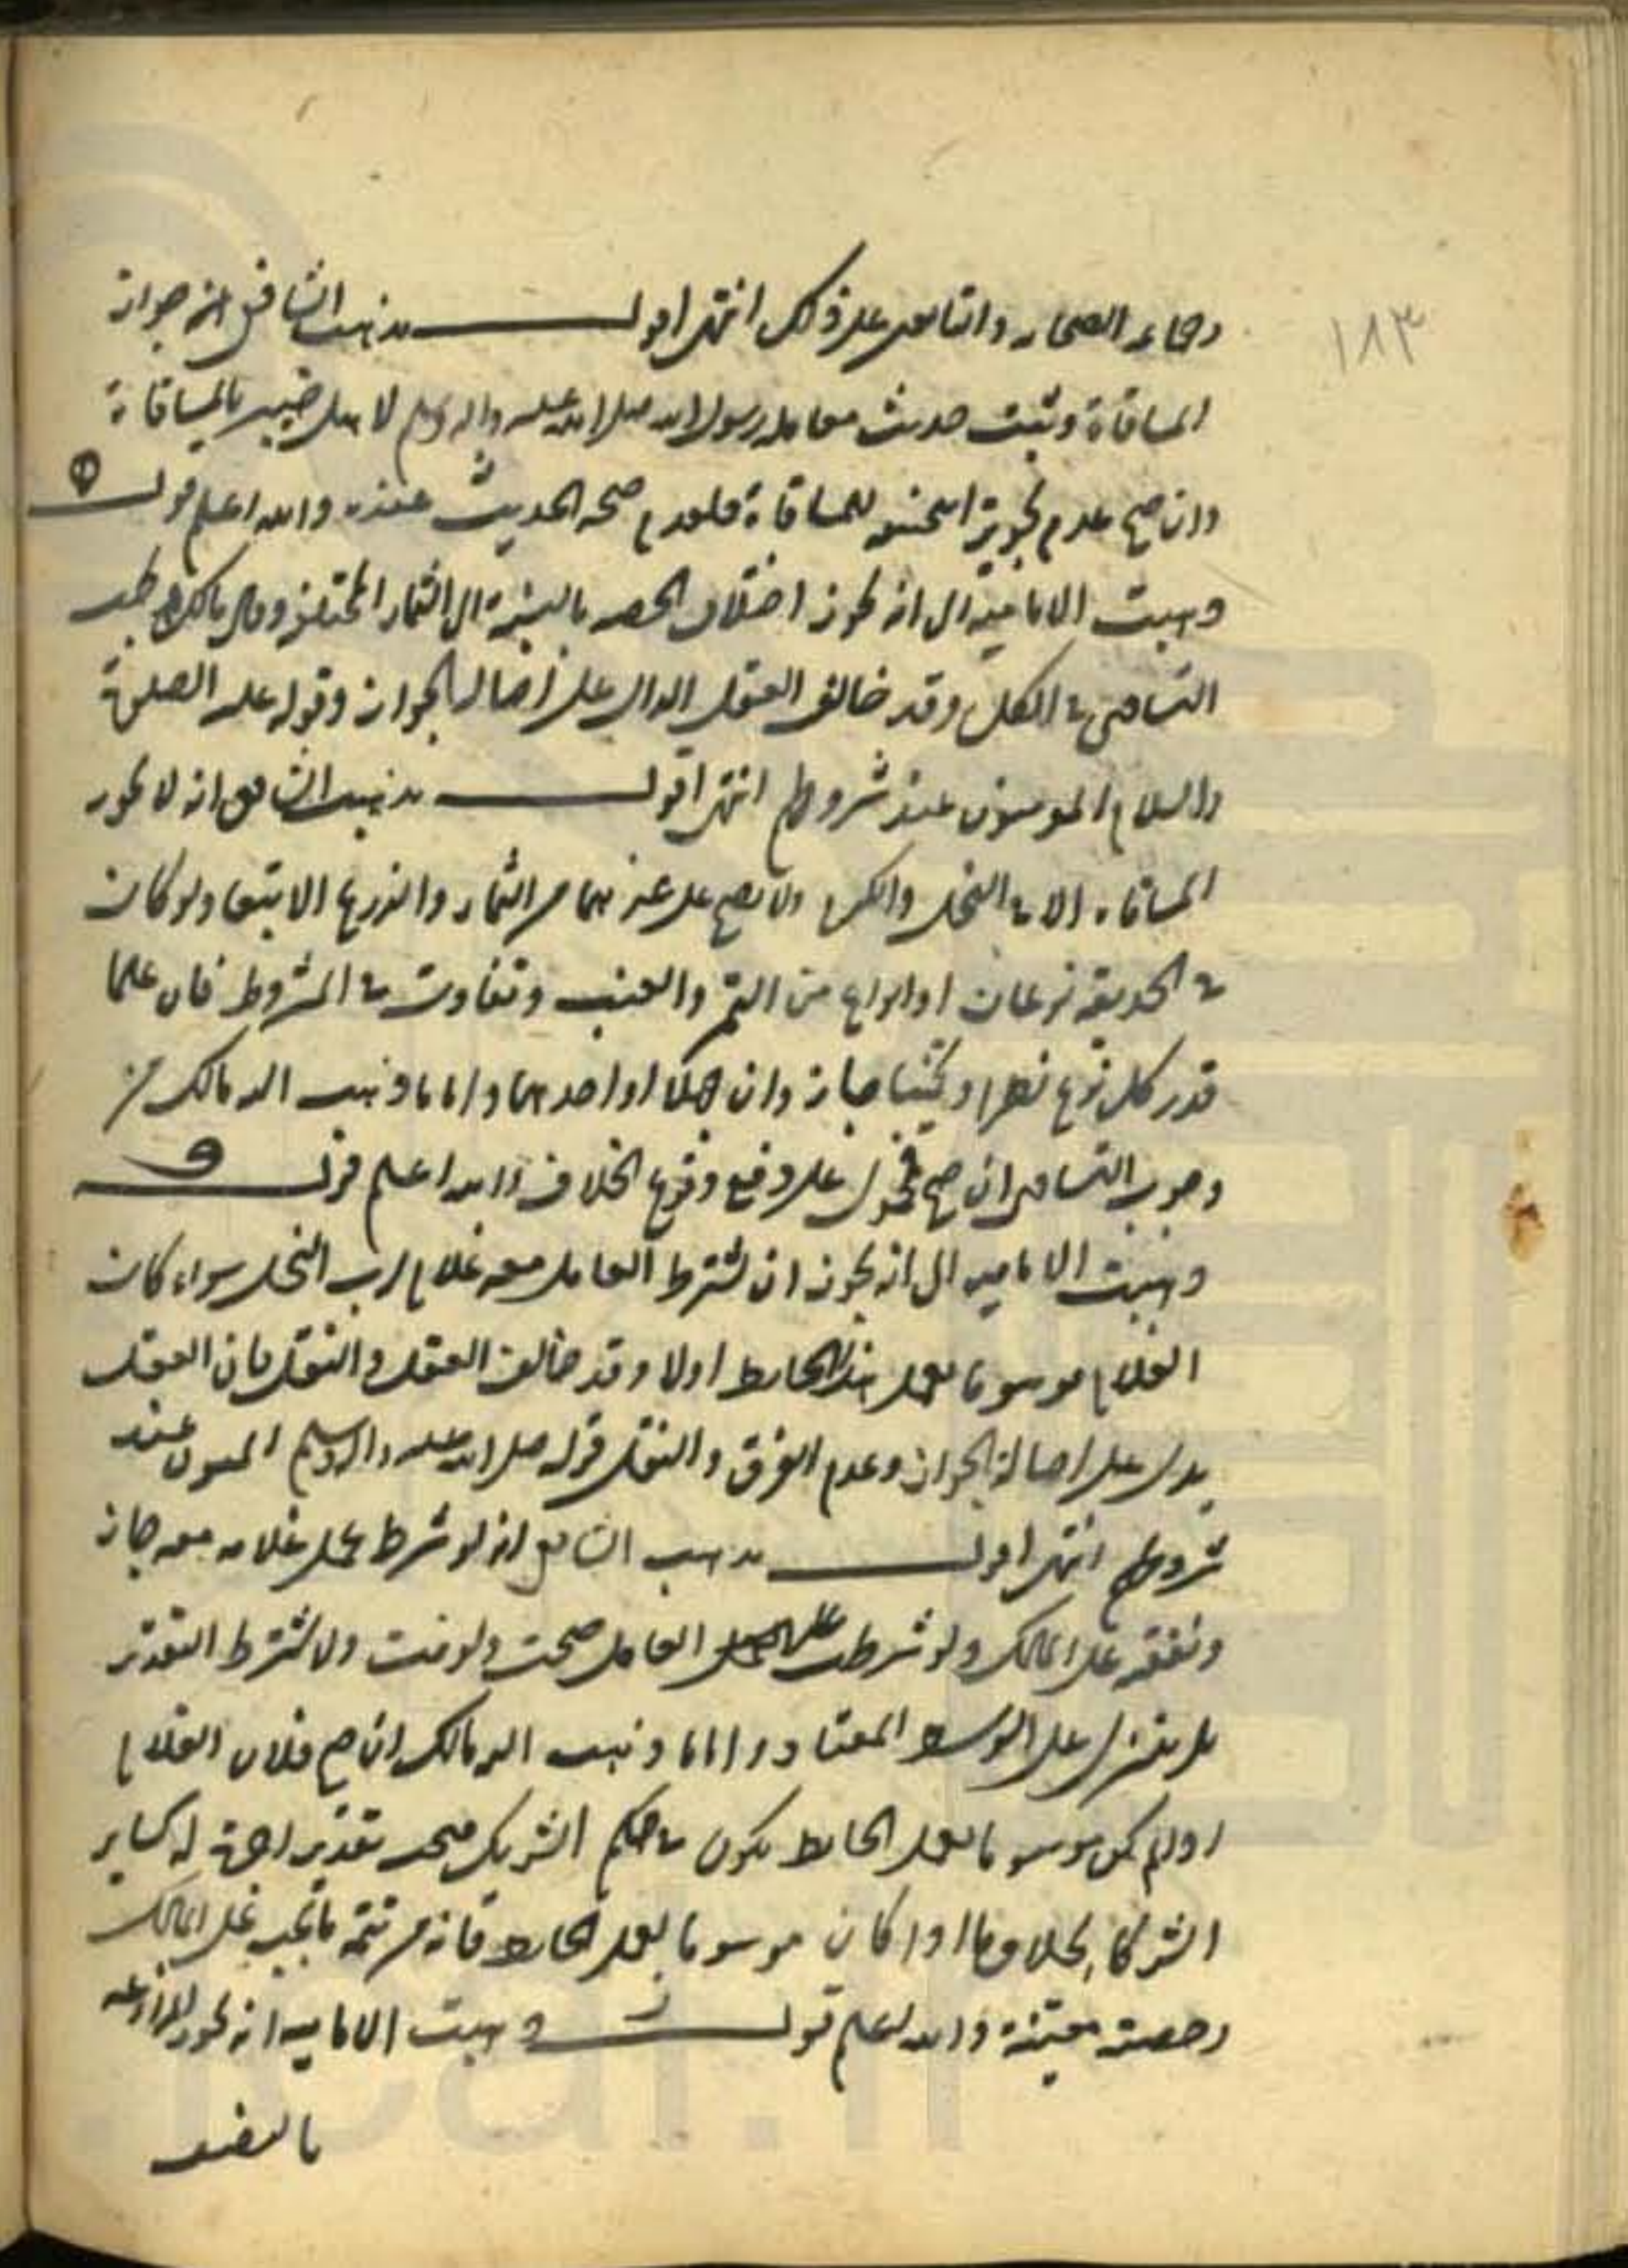 ١٨٣
وجماعه الصحابه والتابعين على ذلك انتهى اقول مذهب الشافعى انه جواز
المساقاة وثبت حديث معامله رسول الله صلى الله عليه واله وسلم لاهل خيبر بالمساقاة
وان صح عدم تجويز ابى حنيفه للمساقاة فلعدم صحه الحديث عنده والله اعلم قول ه
ذهبت الاماميه الى انه يجوز اختلاف الحصه بالنسبة الى الثمار المختلفه وقال مالك يجب
التساوى فى الكل وقد خالف العقل الدال على اصاله الجواز وقوله عليه الصلوة
والسلام المؤمنون عند شروطهم انتهى اقول مذهب الشافعى انه لا يجوز
المساقاه الا فى النخل والكرم ولا يصح على غيرهما من الثمار والزرع الا تبعا ولو كان
فى الحديقه نوعان او انواع من التمر والعنب وتفاوت فى المشروط فان علما
قدر كل نوع نظرا وتخمينا جاز وان جهلا او احدهما واما ما ذهب اليه مالك من
وجوب التساوى ان صح فمحمول على دفع وقوع الخلاف والله اعلم قول و
ذهبت الاماميه الى انه يجوز ان يشترط العامل معه غلام لرب النخل سواء كان
الغلام موسوما بعمل هذا الحايط اولا وقد خالف العقل والنقل فان العقل
يدل على اصالة الجواز وعدم الفرق والنقل قوله صلى الله عليه واله وسلم المسلمون عند
شروطهم انتهى اقول مذهب الشافعى انه لو شرط عمل غلامه معه جاز
ونفقته على المالك ولو شرطت على العامل صحت ولو فت ولا يشترط التقدير
بل ينزل على الوسط المعتاد واما ما ذهب اليه مالك ان صح فلان الغلام
لو لم يكن موسوما بعمل الحايط يكون فى حكم الشريك فيجب تقدير اجرة له كساير
الشركا بخلاف ما اذا كان موسوما بعمل الحايط فانه من تتمه ما يجب على المالك
وحصته معينة والله اعلم قول ز ذهبت الاماميه انه يجوز المزارعه
بالنصف